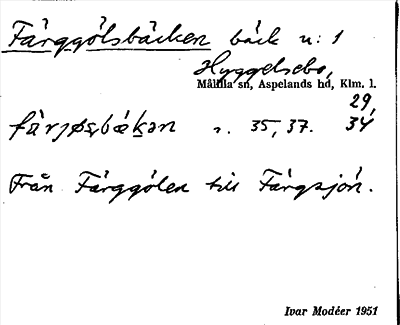 Färggölsbäcken bäck u: 1
Hyggelsebo,
Målilla sn, Aspelands hd, Klm. l.
29,
35, 37. 34
Från Färggölen till Färgsjön.
Ivar Modéer 1951